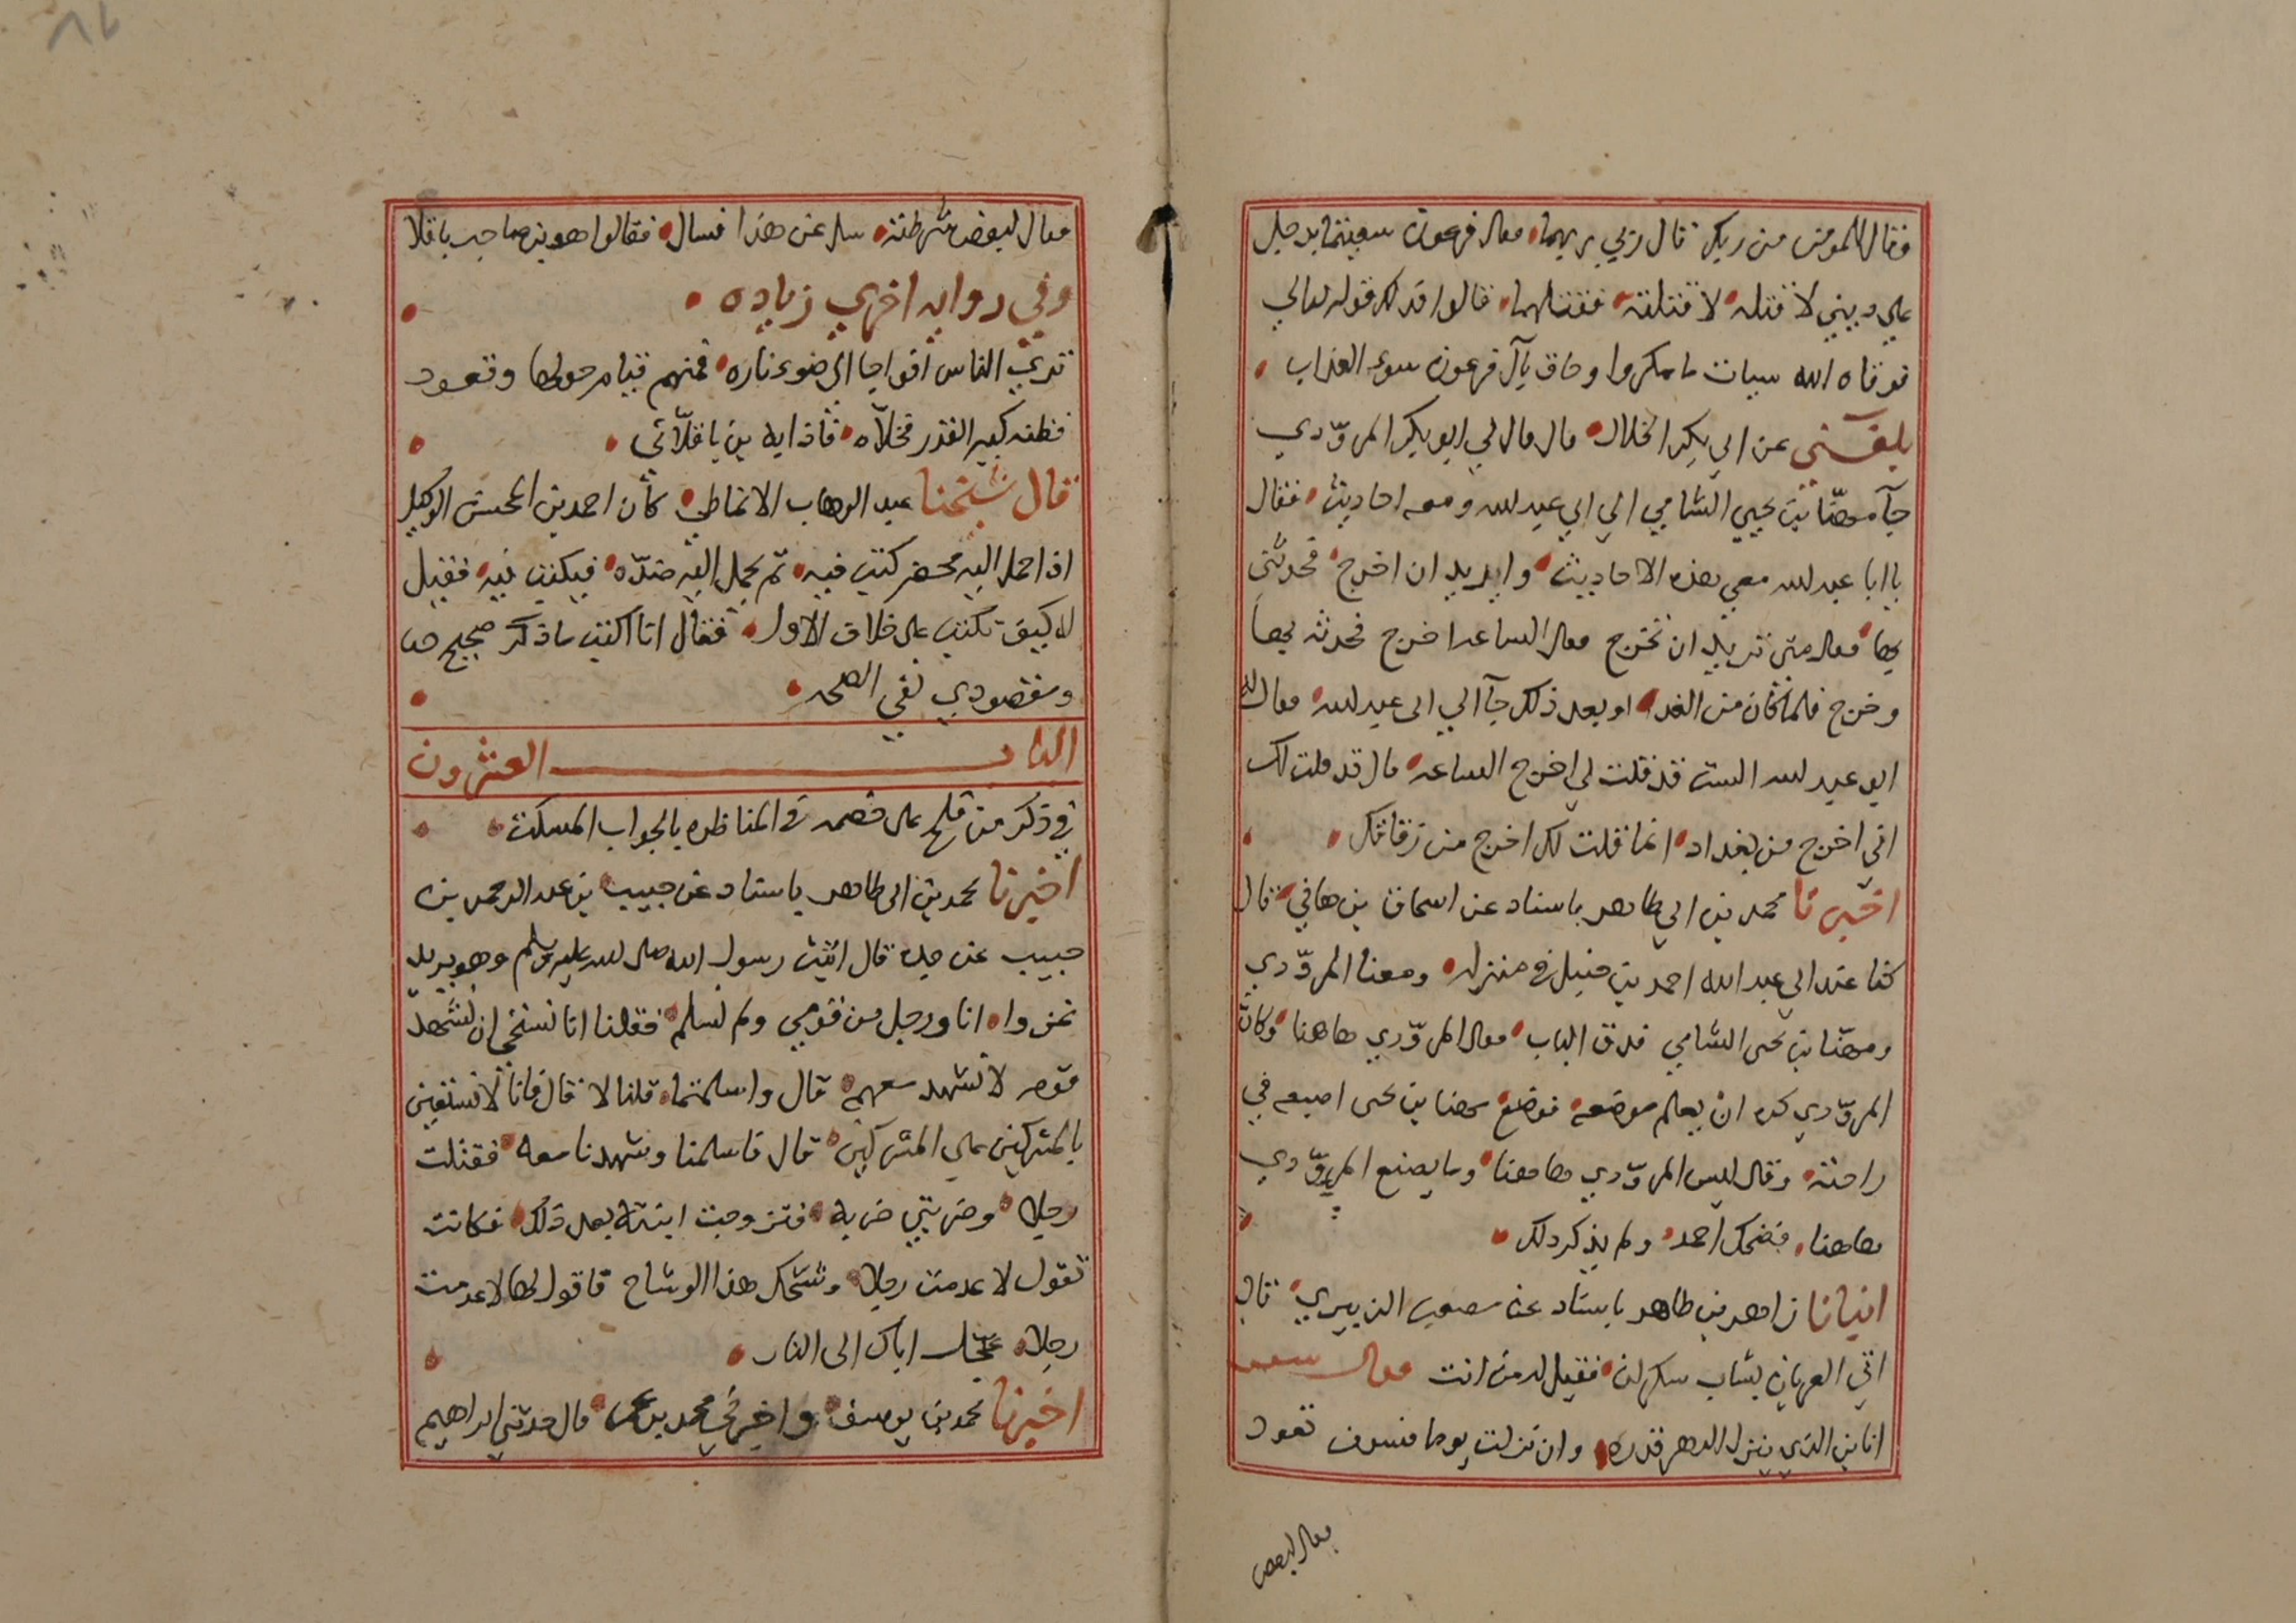 فقال للمومن من ربك قال ربي ربهما فقال فرعون سعيتما برجل
علي ديني لاقتله لاقتلنه فقتلهما قالوا فذلك قوله تعالي
فوقاه الله سيات ما مكروا وحاق بآل فرعون سوء العذاب
بلغني عن ابي بكر الخلال قال قال لي ابو بكر المروّدي
جآ مهنّا بن يحيي الشامي الي ابي عبد لله ومعه احاديث فقال
يا ابا عبد لله معي هذه الاحاديث واريد ان اخرج فحدثني
بها فقال متي تريد ان تخرج فقال الساعه اخرج فحدثه بها
وخرج فلما كان من الغد او بعد ذلك جآ الي ابي عبد لله فقال له
ابو عبد لله الست قد قلت لي اخرج الساعه قال قد قلت لك
اني اخرج من بغداد انما قلت لك اخرج من زقاقك
اخبرنا محمد بن ابي طاهر باسناد عن اسحاق بن هاني قال
كنا عند ابي عبد الله احمد بن حنبل في منزله ومعنا المروّدي
ومهنا بن يحيى الشامي فدق الباب فقال المروّدي هاهنا وكان
المروّدي كره ان يعلم موضعه فوضع مهنا بن يحيى اصبعه في
راحته وقال ليس المروّدي هاهنا وما يصنع المروّدي
هاهنا فضحك احمد ولم يذكر ذلك
انبانا زاهر بن طاهر باسناد عن مصعب الزبيري قال
اتي العريان بشاب سكران فقيل له من انت فقال شعر
انا بن الذي ينزل الدهر قدره وان نزلت يوما فسوف تعود
فقال لبعض
فقال لبعض شرطته سل عن هذا فسال فقالوا هو بن صاحب باقلا
وفي روايه اخري زياده
تري الناس افواجا الي ضوء ناره فمنهم قيام حولها وقعود
فظنه كبير القدر فخلاّه فاذا به بن باقلاّئي
قال شيخنا عبد الوهاب الانماطي كان احمد بن المحسن الوكيل
اذا حمل اليه محضر كتب فيه ثم يحمل اليه ضدّه فيكتب فيه فقيل
له كيف تكتب على خلاف الاول فقال انا اكتب ما ذكر صحيح
ومقصودي نفي الصحه
الباب العشرون
في ذكر من فلح على خصمه في المناظره بالجواب المسكت
اخبرنا محمد بن ابي طاهر باسناد عن حبيب بن عبد الرحمن بن
حبيب عن جده قال اتيت رسول الله صلى لله عليه وسلم وهو يريد
غزوا انا ورجل من قومي ولم نسلم فقلنا انا نستحي ان نشهد
قوم لا نشهد معهم قال واسلمتما قلنا لا قال فانا لا نستعين
بالمشركين علي المشركين قال فاسلمنا وشهدنا معه فقتلت
رجلا وضربني ضربه فتزوجت ابنته بعد ذلك فكانت
تقول لا عدمت رجلا وشحك هذا الوشاح فاقول لها لا عدمت
رجلا عجل اباك الى النار
اخبرنا محمد بن يوسف واخبرني محمد بن عمر قال حدثني ابراهيم